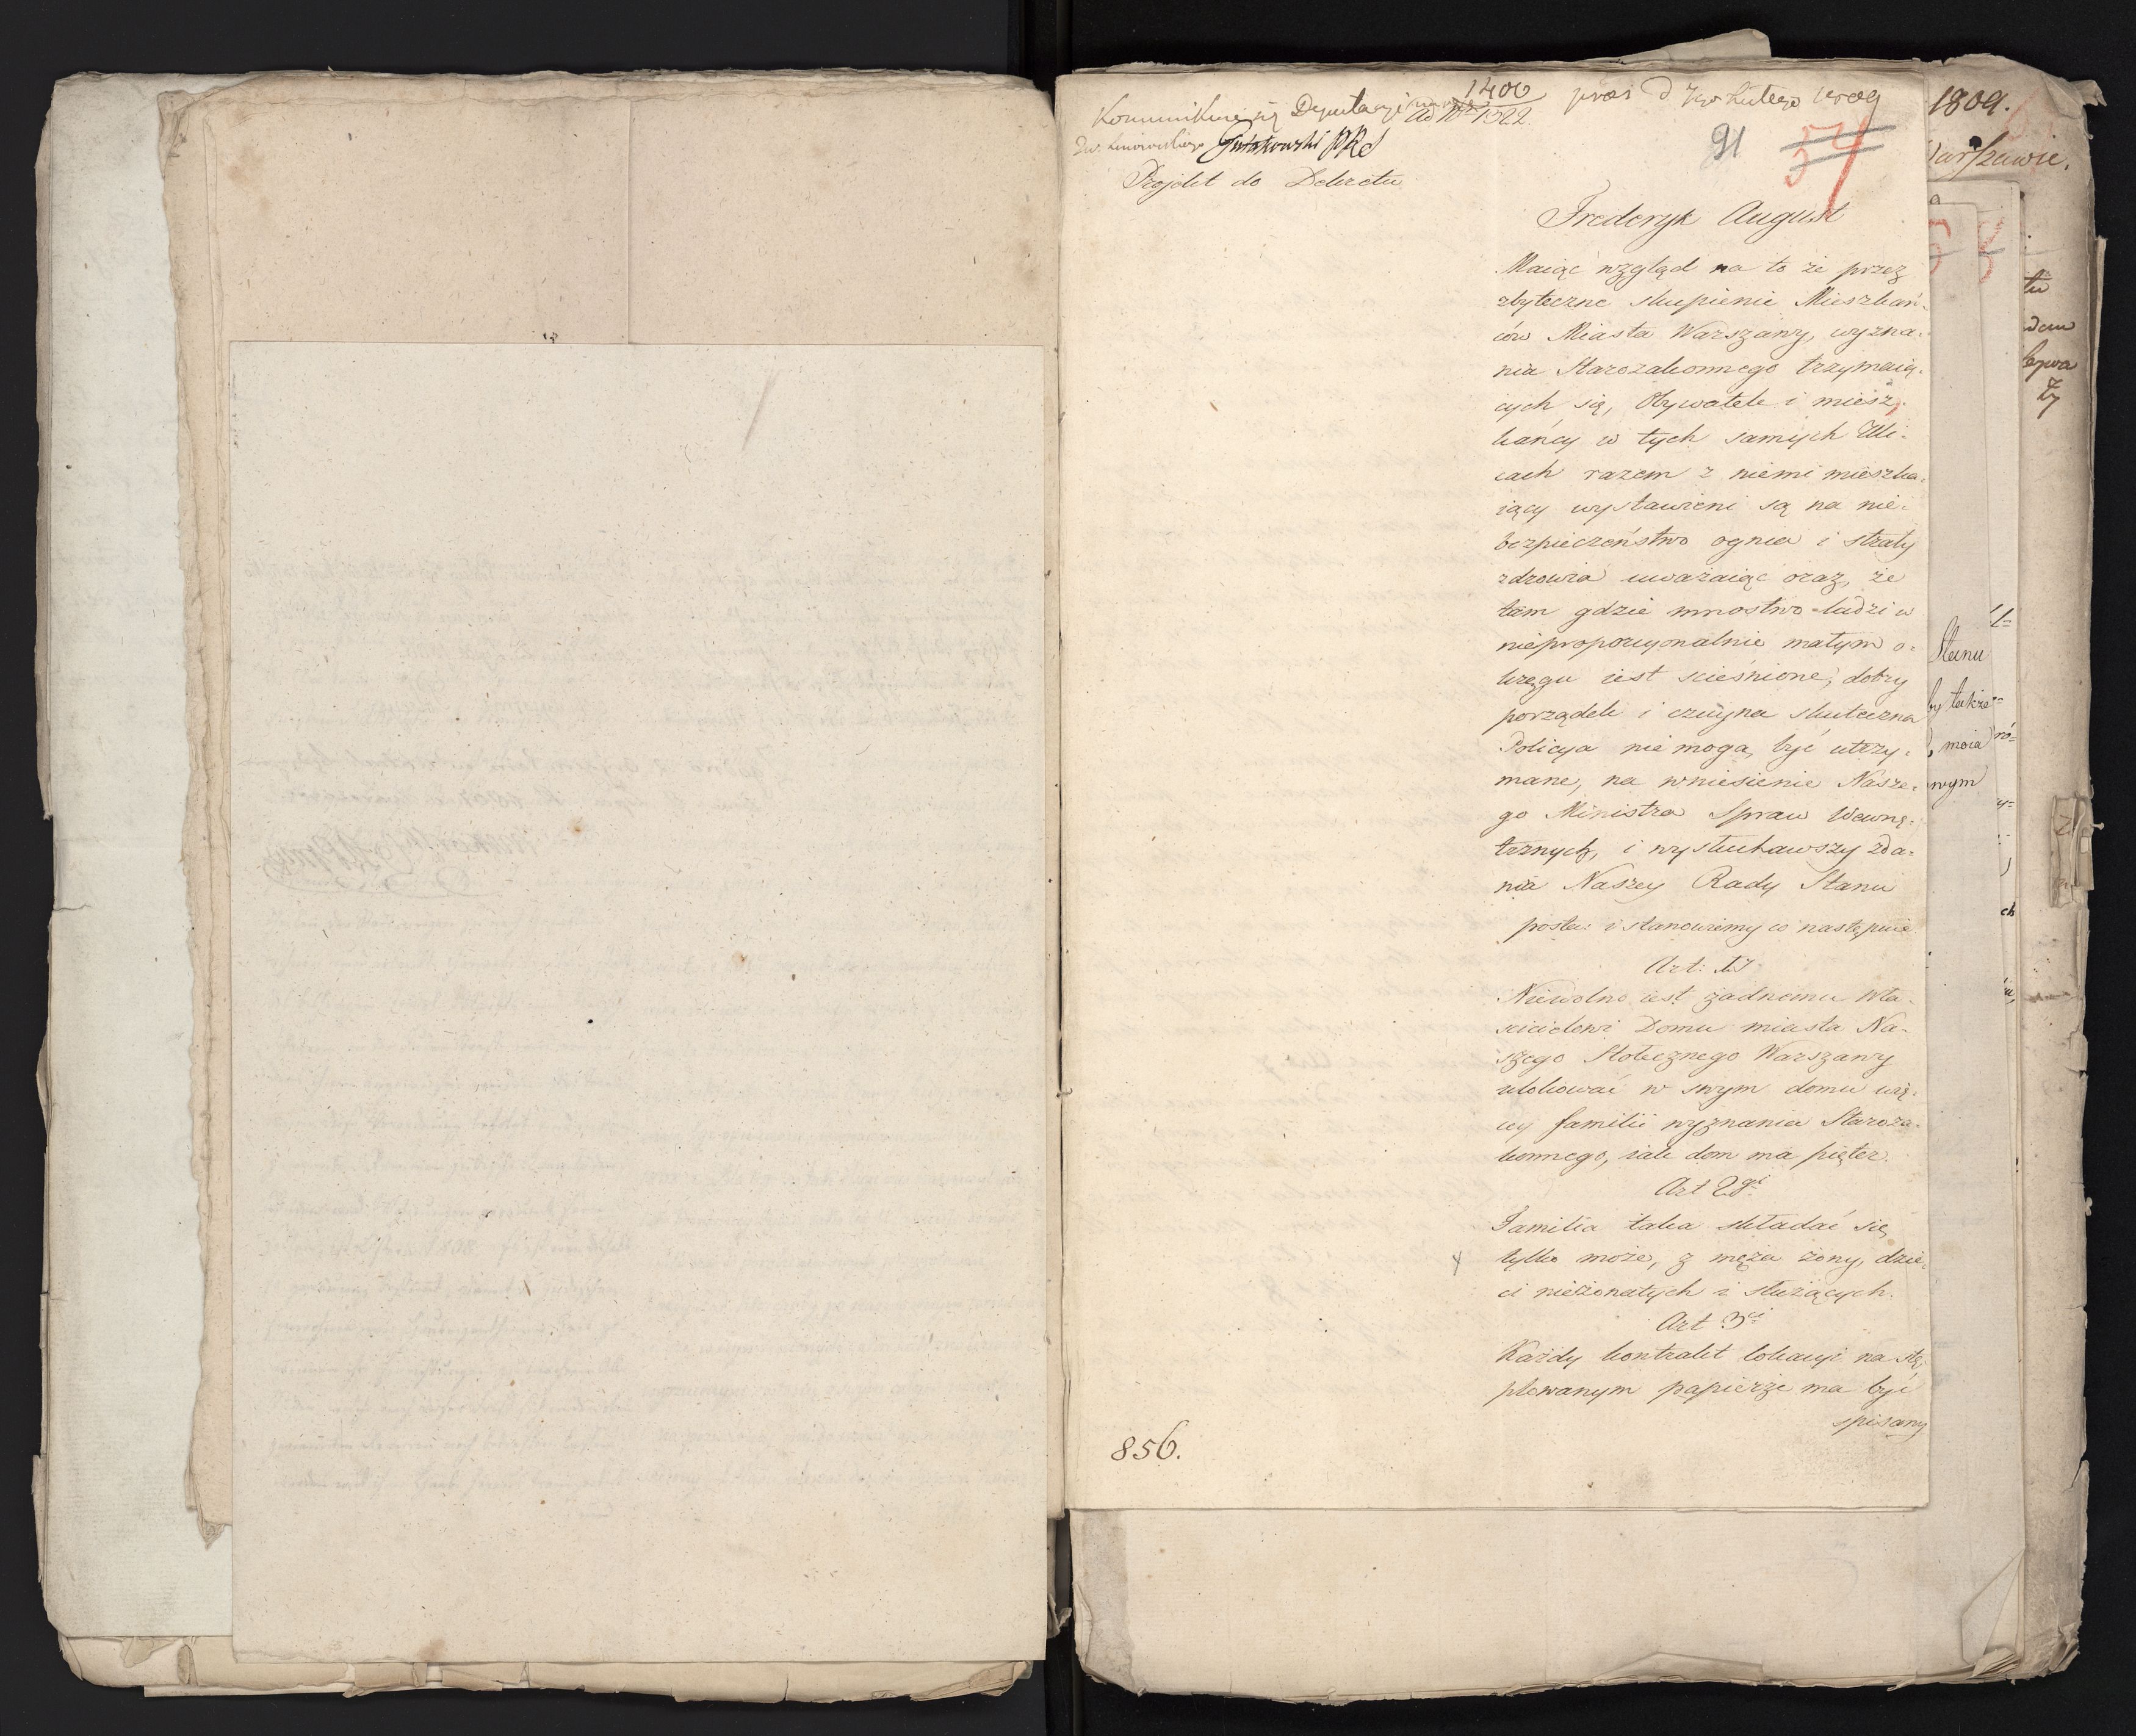 1406
Kommunikuie się Deputacyi
ad Nr 1522.
praes d 7go Lutego 1809
Gutakowski PRS
91
54
Projekt do Dekretu
Frederyk August
Maiąc wzgląd na to że przez
zbyteczne skupienie Mieszkań-
ców Miasta Warszawy, wyzna-
nia Starozakonnego trzymaią-
cych się, Obywatele i miesz-
kańcy w tych samych Uli-
cach razem z niemi mieszka-
iący wystawieni są na nie-
bezpieczeństwo ognia i straty
zdrowia uważaiąc oraz, że
tam gdzie mnostwo ludzi w
nieproporcyonalnie małym o-
kręgu iest scieśnione, dobry
porządek i czuyna skuteczna
Policya nie mogą być utrzy-
mane, na wniesienie Nasze-
go Ministra Spraw Wewnę-
trznych, i wysłuchawszy zda-
nia Naszey Rady Stanu
postan: i stanowiemy co następuie
Art: 1y
Niewolno iest żadnemu Wła-
scicielowi Domu miasta Na-
szego Stołecznego Warszawy
ulokować w swym domu wię-
cy familii wyznania Staroza-
konnego, iak dom ma pięter.
Art 2gi
Familia taka składać się
tylko może, z męża żony, dzie-
ci nieżonatych i służących.
Art 3ci
Każdy kontrakt lokacyi na stę-
plowanym papierze ma być
spisany
856.
1809.
Warszawie.
Stanu
by także
moia
wym